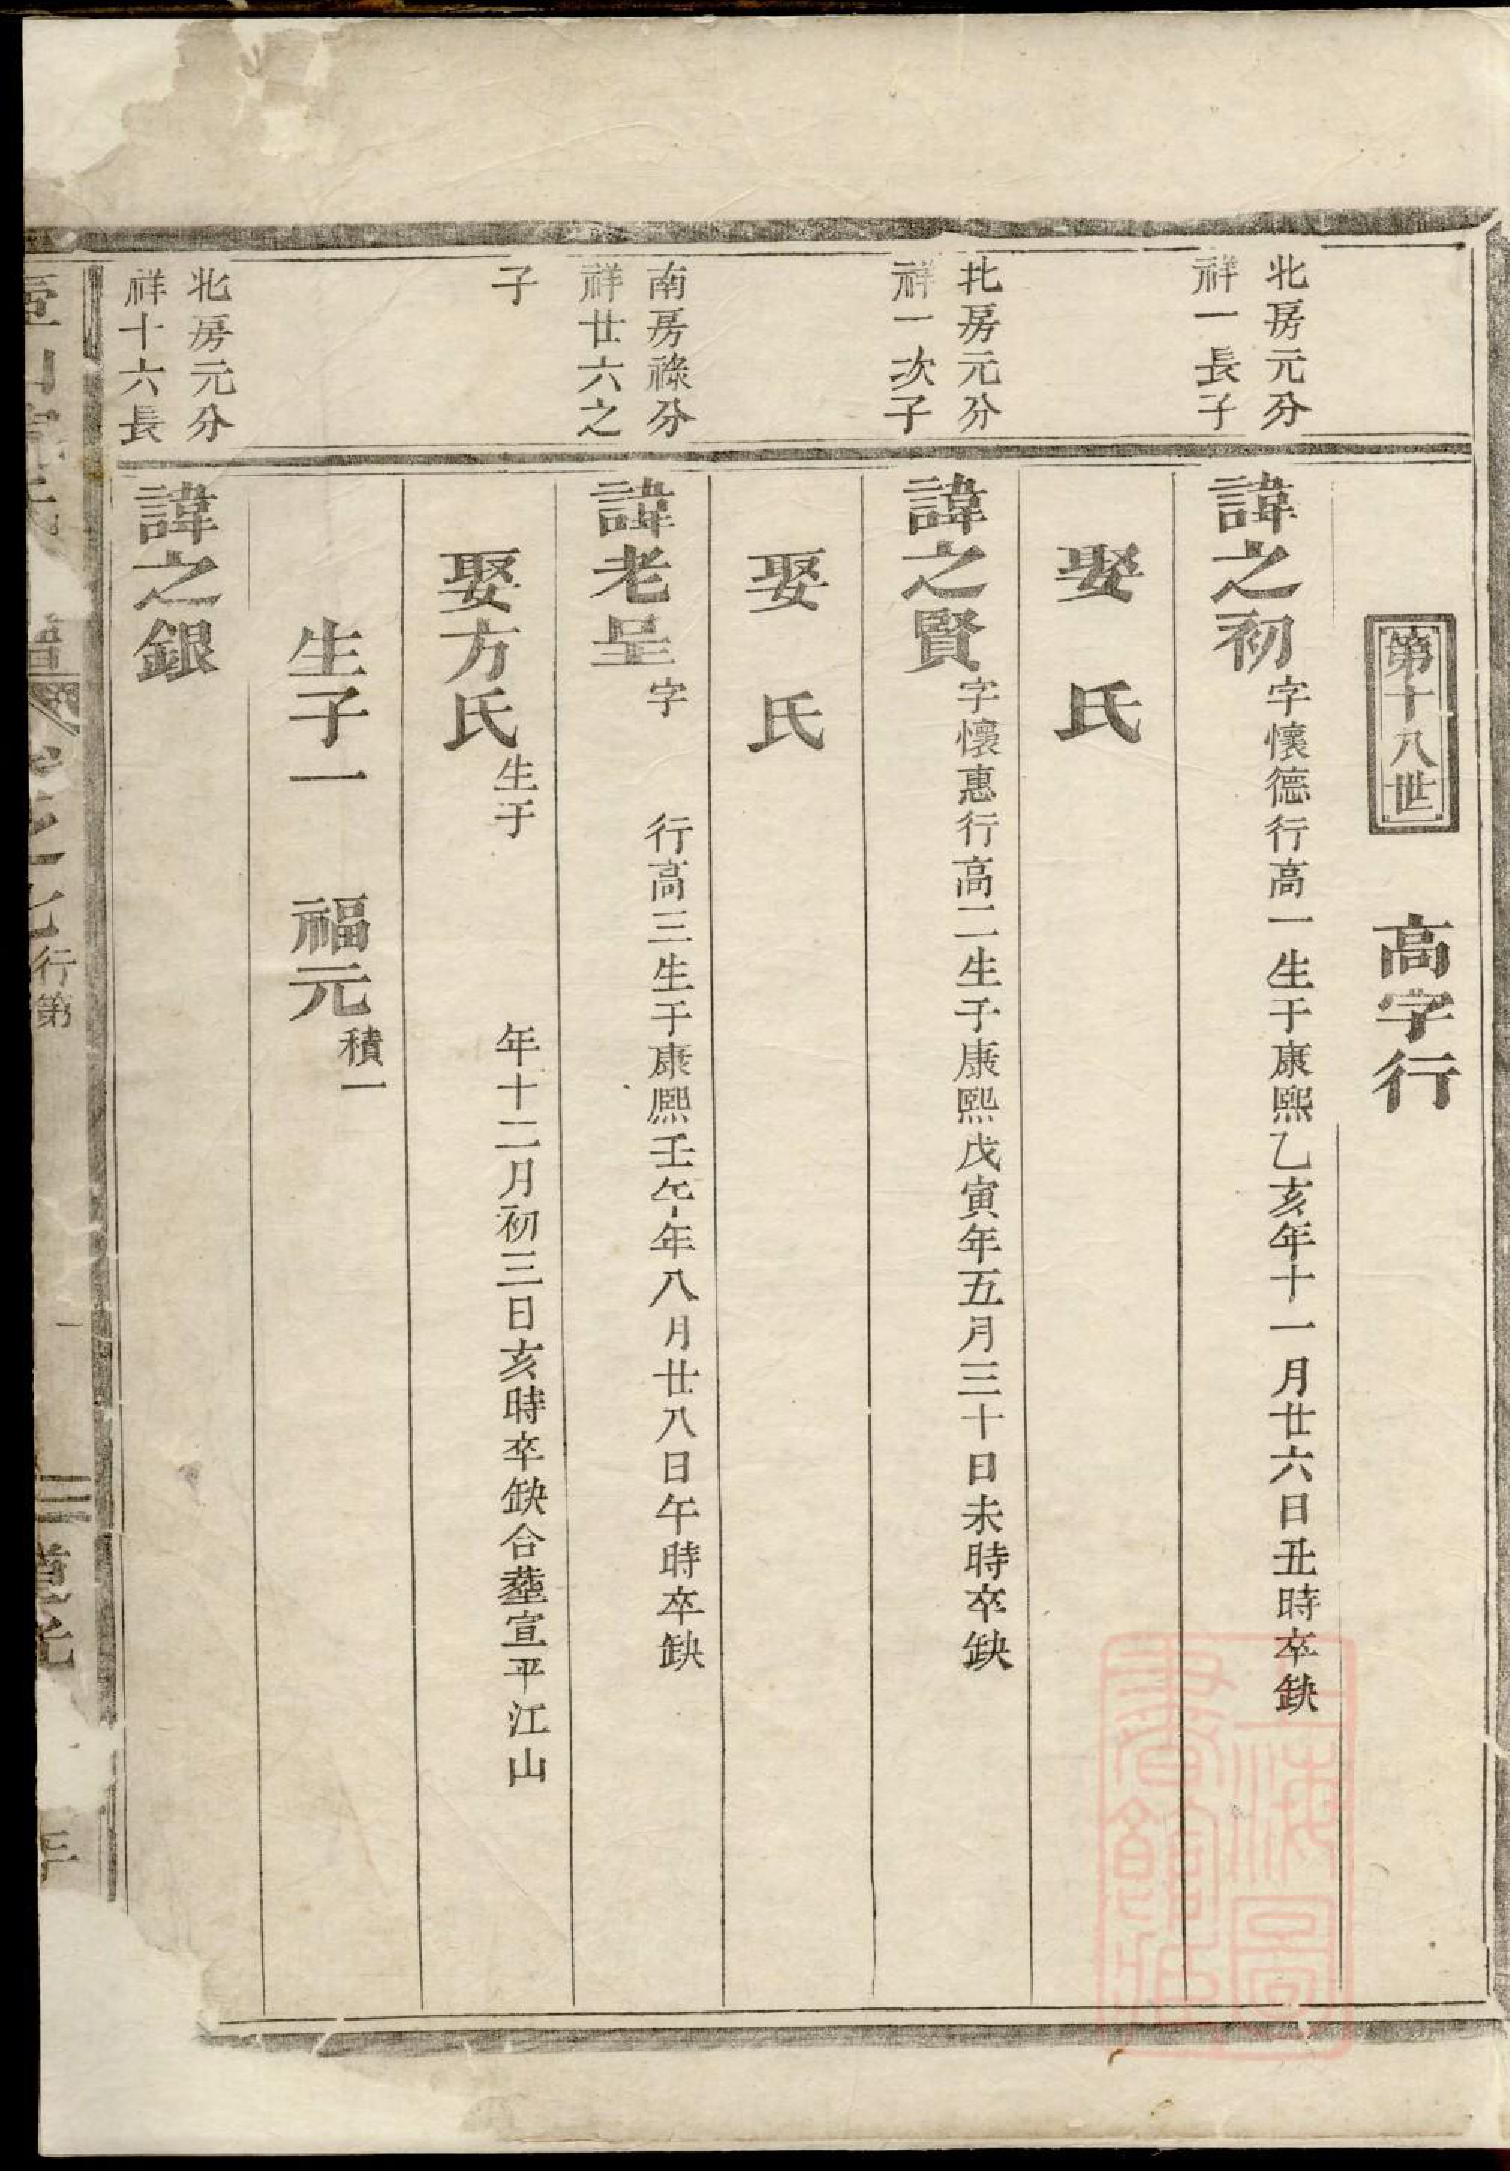 第十八世
高字行
北房元分
祥一長子
諱之初
字懷德行高一生于康熙乙亥年十一月廿六日丑時卒缺
娶 氏
北房元分
祥一次子
諱之賢
字懷惠行高二生于康熙戊寅年五月三十日未時卒缺
娶 氏
南房祿分
祥廿六之
子
諱老呈
字 行高三生于康熙壬午年八月廿八日午時卒缺
娶方氏
生于 年十二月初三日亥時卒缺合塟宣平江山
生子一 福元
積一
北房元分
祥十六長
諱之銀
之七
行第
一
道光
年
上海圖
書館藏